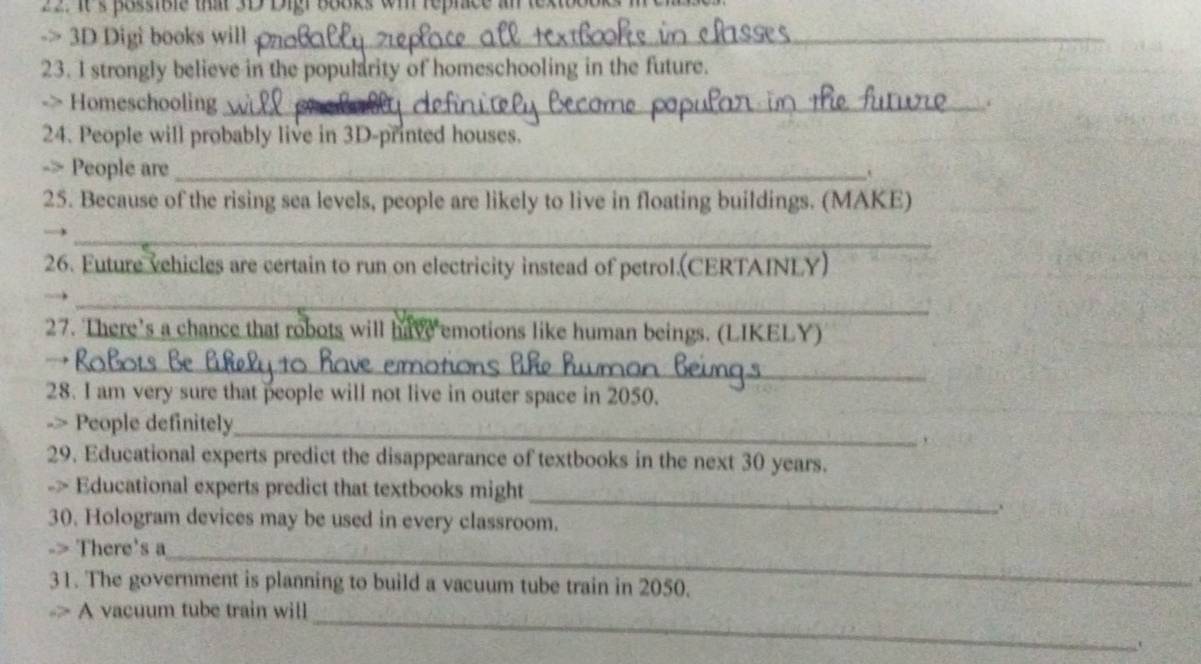 22. It's possible that 3D Digi books will replace all textbooks in classes.
-> 3D Digi books will probally replace all textbooks in classes
23. I strongly believe in the popularity of homeschooling in the future.
-> Homeschooling will definitely become popular in the future.
24. People will probably live in 3D-printed houses.
-> People are ___.
25. Because of the rising sea levels, people are likely to live in floating buildings. (MAKE)
→ ___
26. Future vehicles are certain to run on electricity instead of petrol.(CERTAINLY)
→ ___
27. There's a chance that robots will have emotions like human beings. (LIKELY)
→ Robots be likely to have emotions like human beings
28. I am very sure that people will not live in outer space in 2050.
-> People definitely___.
29. Educational experts predict the disappearance of textbooks in the next 30 years.
-> Educational experts predict that textbooks might ___.
30. Hologram devices may be used in every classroom.
-> There's a___
31. The government is planning to build a vacuum tube train in 2050.
-> A vacuum tube train will ___.